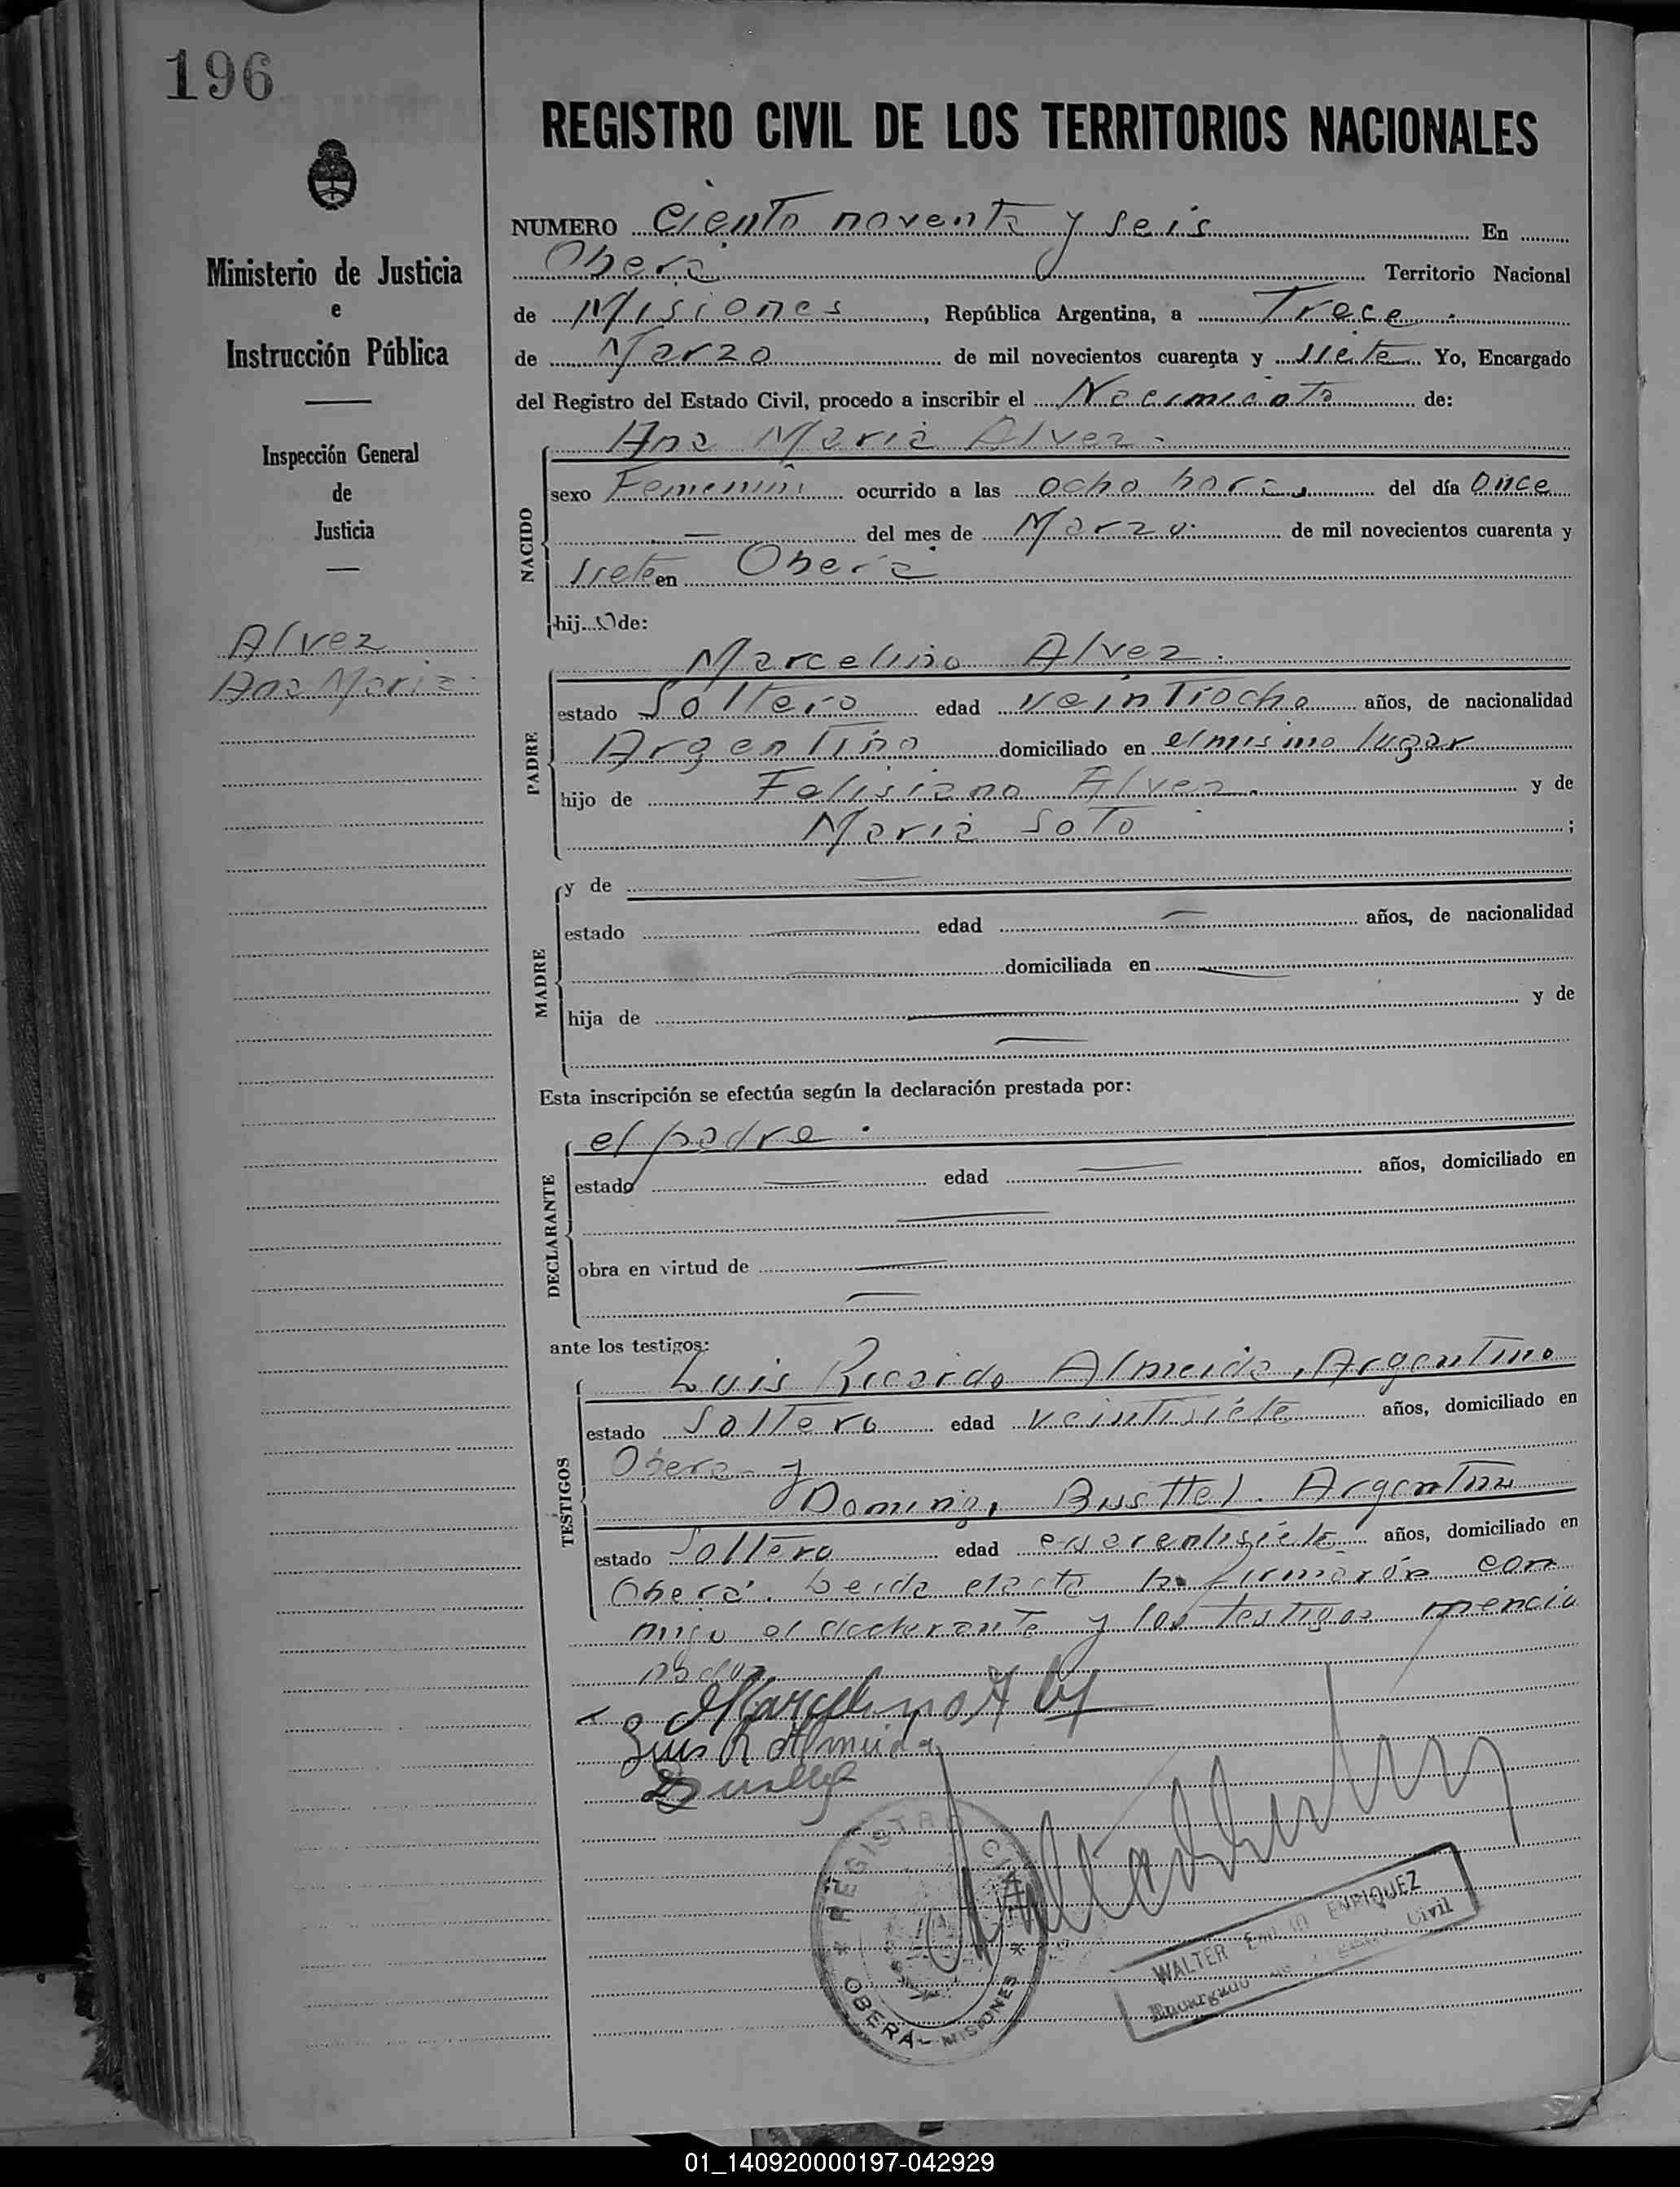 196
REGISTRO CIVIL DE LOS TERRITORIOS NACIONALES
Ministerio de Justicia
e
Instrucción Pública
Inspección General
de
Justicia
Alvez
Ana Maria
NUMERO Ciento noventa y seis En
Oberá Territorio Nacional
de Misiones, República Argentina, a Trece
de Marzo de mil novecientos cuarenta y siete Yo, Encargado
del Registro del Estado Civil, procedo a inscribir el Nacimiento de:
NACIDO
Ana Maria Alvez.
sexo Femenino ocurrido a las ocho horas, del día Once
— del mes de Marzo de mil novecientos cuarenta y
siete en Oberá
hij de:
PADRE
Marcelino Alvez.
estado Soltero edad veintiocho años, de nacionalidad
Argentino domiciliado en el mismo lugar
hijo de Felisiano Alvez. y de
Maria Soto ;
MADRE
y de —
estado — edad — años, de nacionalidad
— domiciliada en —
hija de — y de
—
Esta inscripción se efectúa según la declaración prestada por:
DECLARANTE
el padre.
estado — edad — años, domiciliado en
—
obra en virtud de —
—
ante los testigos:
TESTIGOS
Luis Ricardo Almeida, Argentino
estado Soltero edad veintisiete años, domiciliado en
Oberá y
Domingo Argentino
estado Soltero edad cuarentisiete años, domiciliado en
Oberá. Leida el acta la firmarón con
migo el declarante y los testigos mencio
nados
Marcelino Alvez
Luis R Almeida
REGISTRO CIVIL
OBERÁ - MISIONES
WALTER ENRIQUEZ
Encargado Civil
01_140920000197-042929